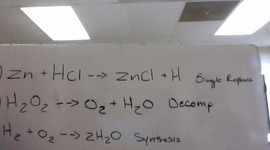 ) Zn + HCl --> ZnCl + H Single Replace
) H₂O₂ --> O₂ + H₂O Decomp
) H₂ + O₂ --> 2H₂O Synthesis